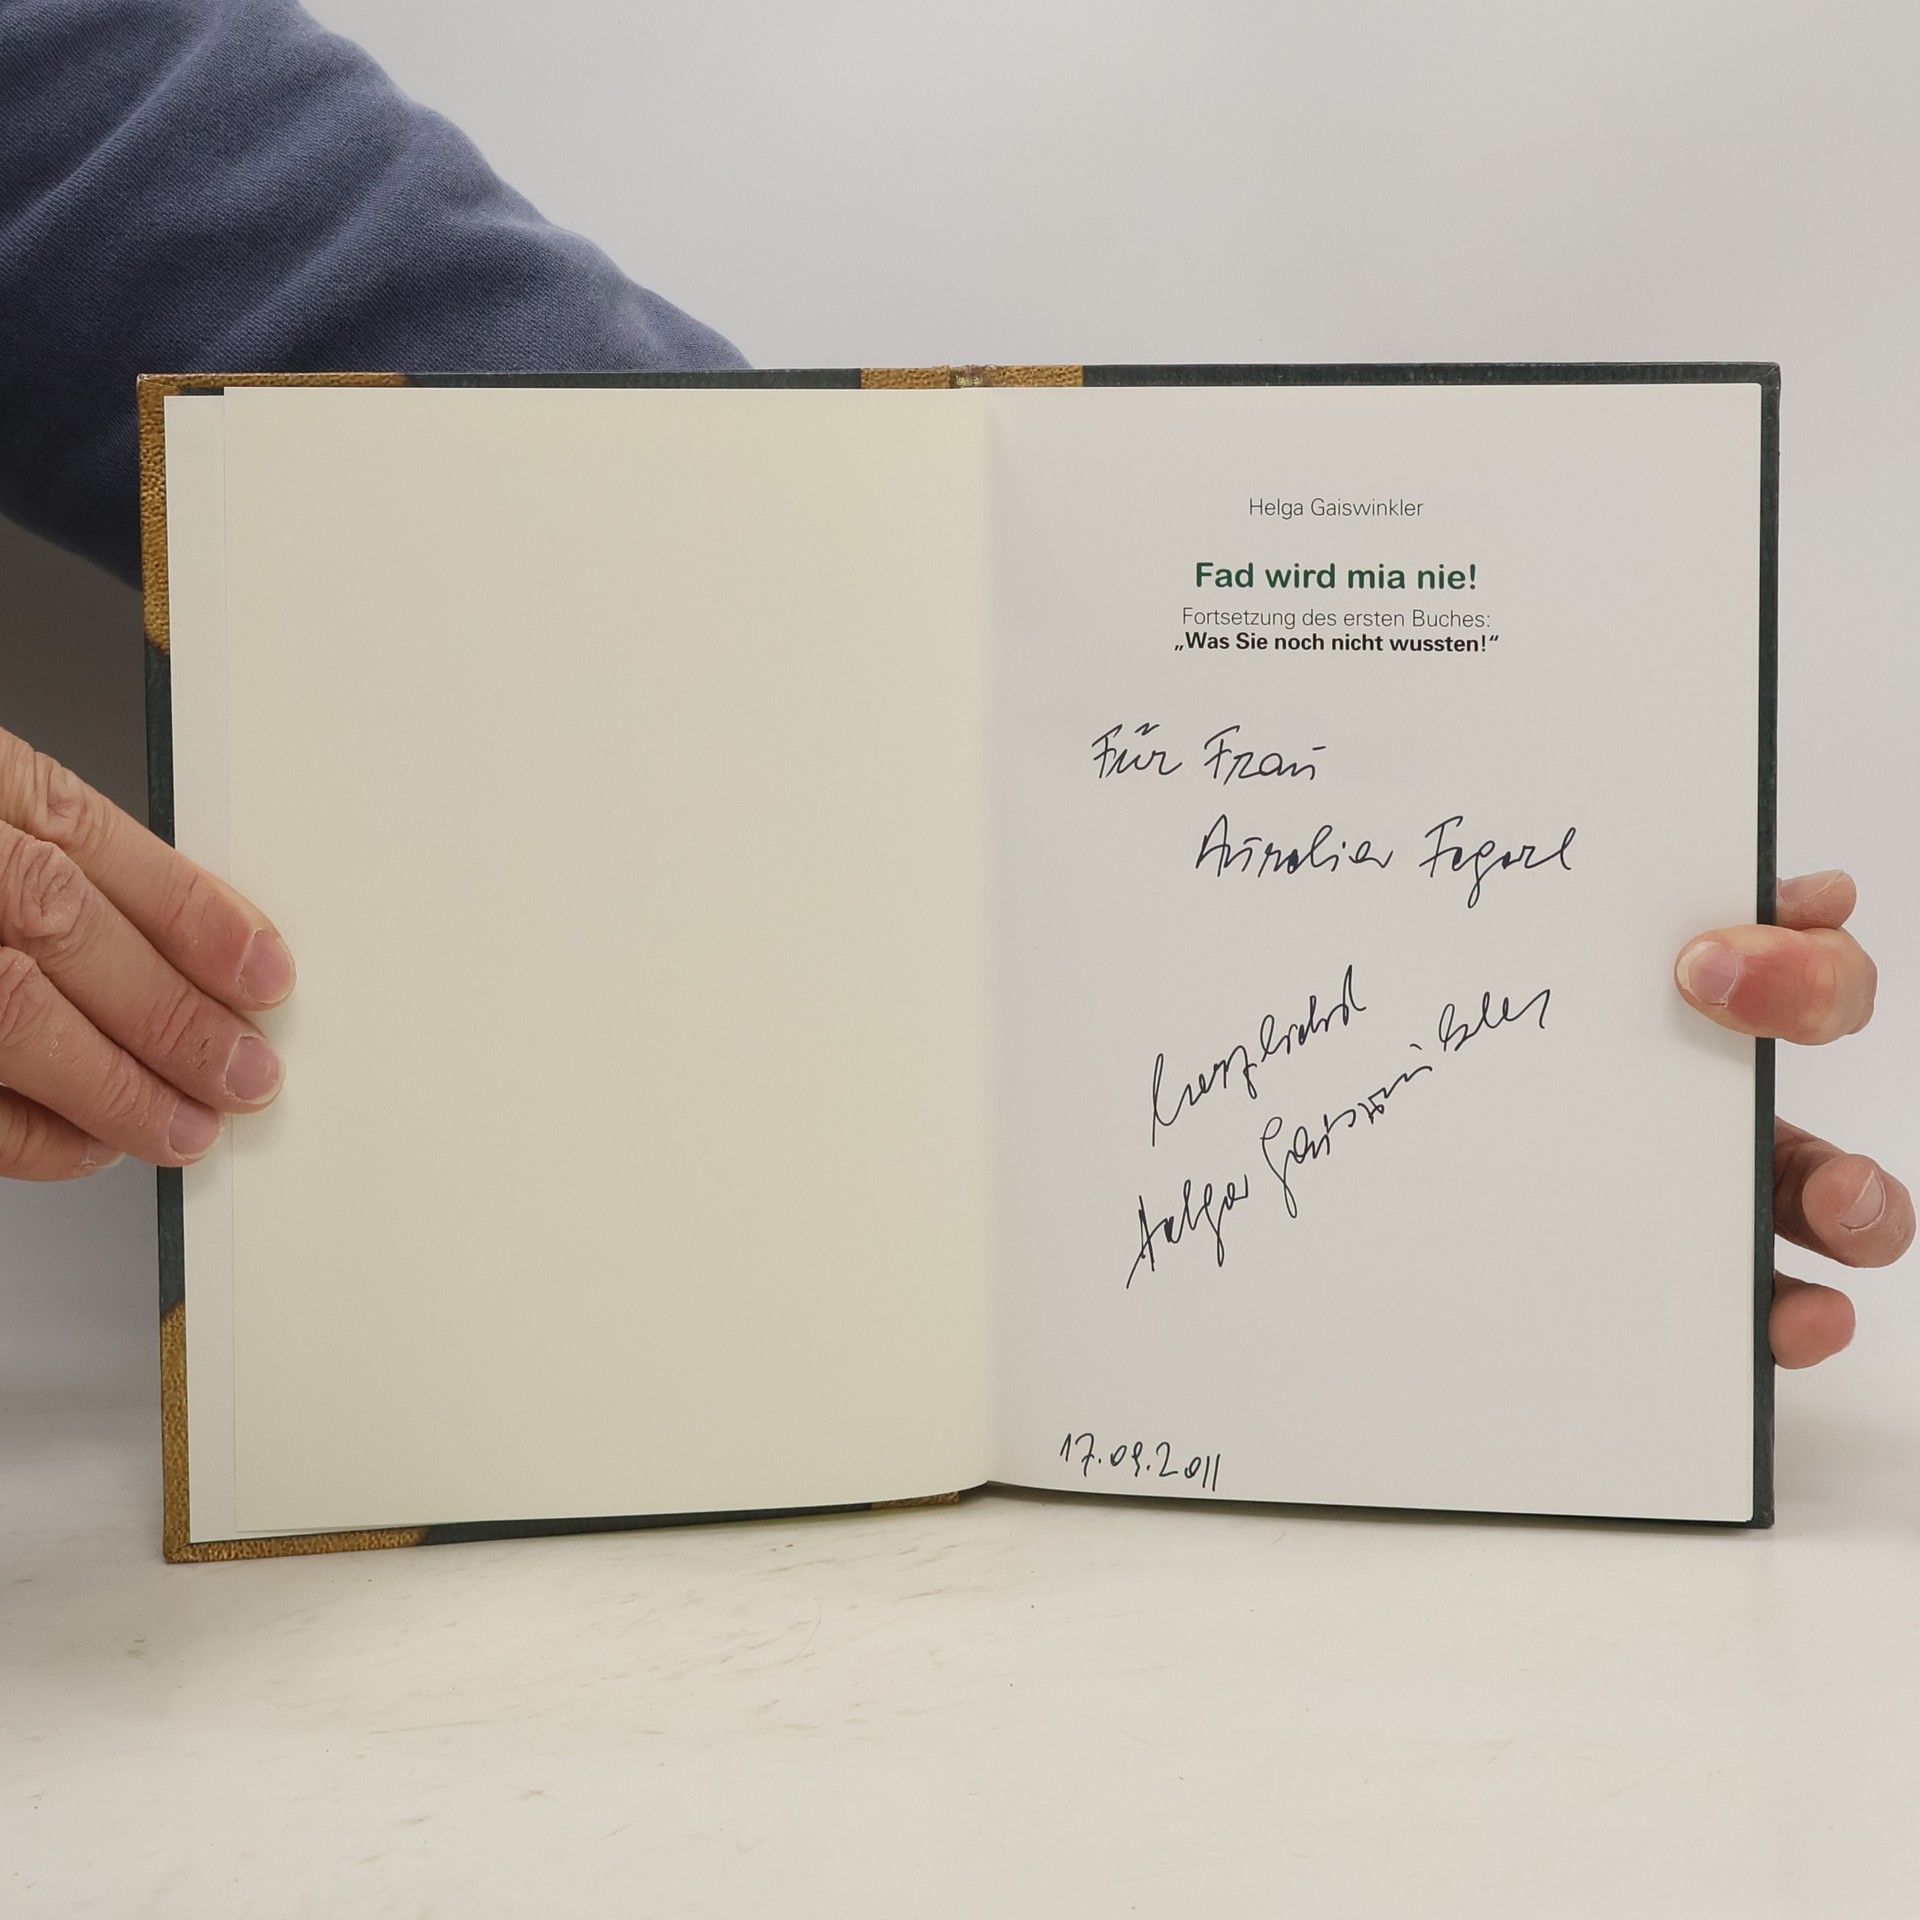 Helga Gaiswinkler
Fad wird mia nie!
Fortsetzung des ersten Buches:
„Was Sie noch nicht wussten!“
Für Frau
Aurelia
herzlichst
Helga Gaiswinkler
17.09.2011